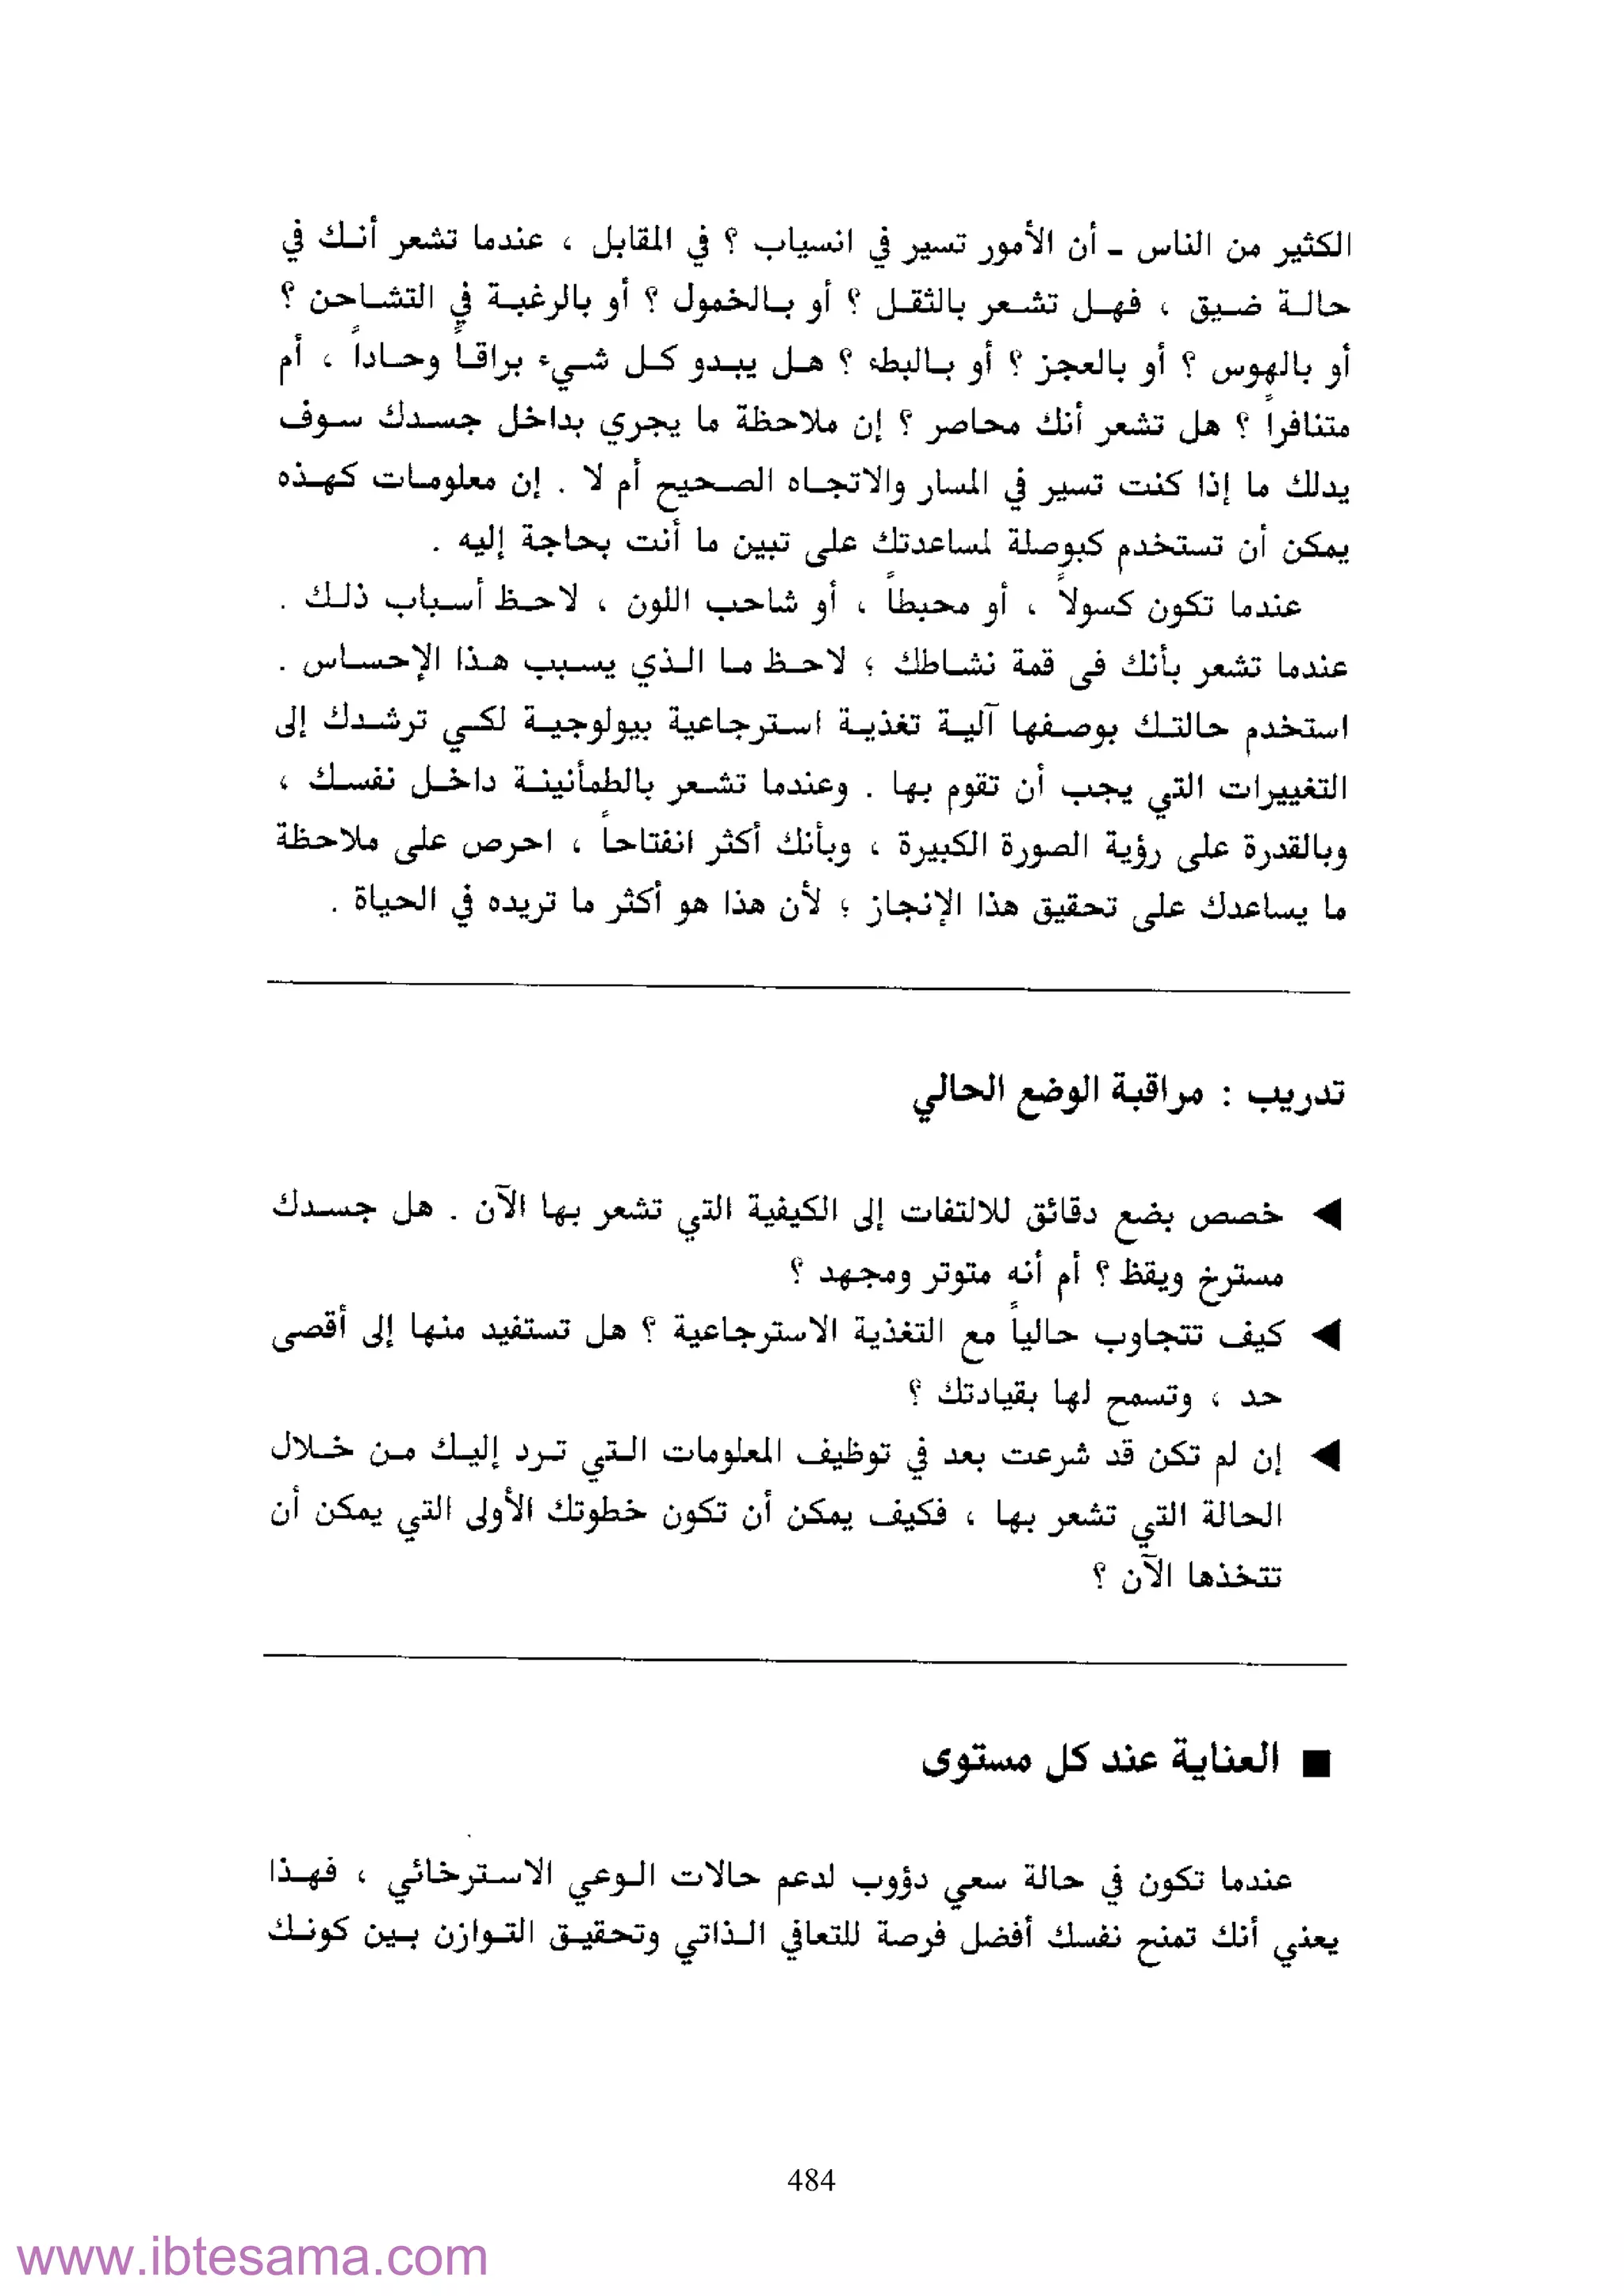 الكثير من الناس - أن الأمور تسير في انسياب ؟ في المقابل ، عندما تشعر أنك في
حالة ضيق ، فهل تشعر بالثقل ؟ أو بالخمول ؟ أو بالرغبة في التشاحن ؟
أو بالهوس ؟ أو بالعجز ؟ أو بالبطء ؟ هل يبدو كل شيء براقاً وحاداً ، أم
متنافراً ؟ هل تشعر أنك محاصر ؟ إن ملاحظة ما يجري بداخل جسدك سوف
يدلك ما إذا كنت تسير في المسار والاتجاه الصحيح أم لا . إن معلومات كهذه
يمكن أن تستخدم كبوصلة لمساعدتك على تبين ما أنت بحاجة إليه .
عندما تكون كسولاً ، أو محبطاً ، أو شاحب اللون ، لاحظ أسباب ذلك .
عندما تشعر بأنك فى قمة نشاطك ؛ لاحظ ما الذي يسبب هذا الإحساس .
استخدم حالتك بوصفها آلية تغذية استرجاعية بيولوجية لكي ترشدك إلى
التغييرات التي يجب أن تقوم بها . وعندما تشعر بالطمأنينة داخل نفسك ،
وبالقدرة على رؤية الصورة الكبيرة ، وبأنك أكثر انفتاحاً ، احرص على ملاحظة
ما يساعدك على تحقيق هذا الإنجاز ؛ لأن هذا هو أكثر ما تريده في الحياة .
تدريب : مراقبة الوضع الحالي
◀ خصص بضع دقائق للالتفات إلى الكيفية التي تشعر بها الآن . هل جسدك
مسترخ ويقظ ؟ أم أنه متوتر ومجهد ؟
◀ كيف تتجاوب حالياً مع التغذية الاسترجاعية ؟ هل تستفيد منها إلى أقصى
حد ، وتسمح لها بقيادتك ؟
◀ إن لم تكن قد شرعت بعد في توظيف المعلومات التي ترد إليك من خلال
الحالة التي تشعر بها ، فكيف يمكن أن تكون خطوتك الأولى التي يمكن أن
تتخذها الآن ؟
■ العناية عند كل مستوى
عندما تكون في حالة سعي دؤوب لدعم حالات الوعي الاسترخائي ، فهذا
يعني أنك تمنح نفسك أفضل فرصة للتعافي الذاتي وتحقيق التوازن بين كونك
484
www.ibtesama.com